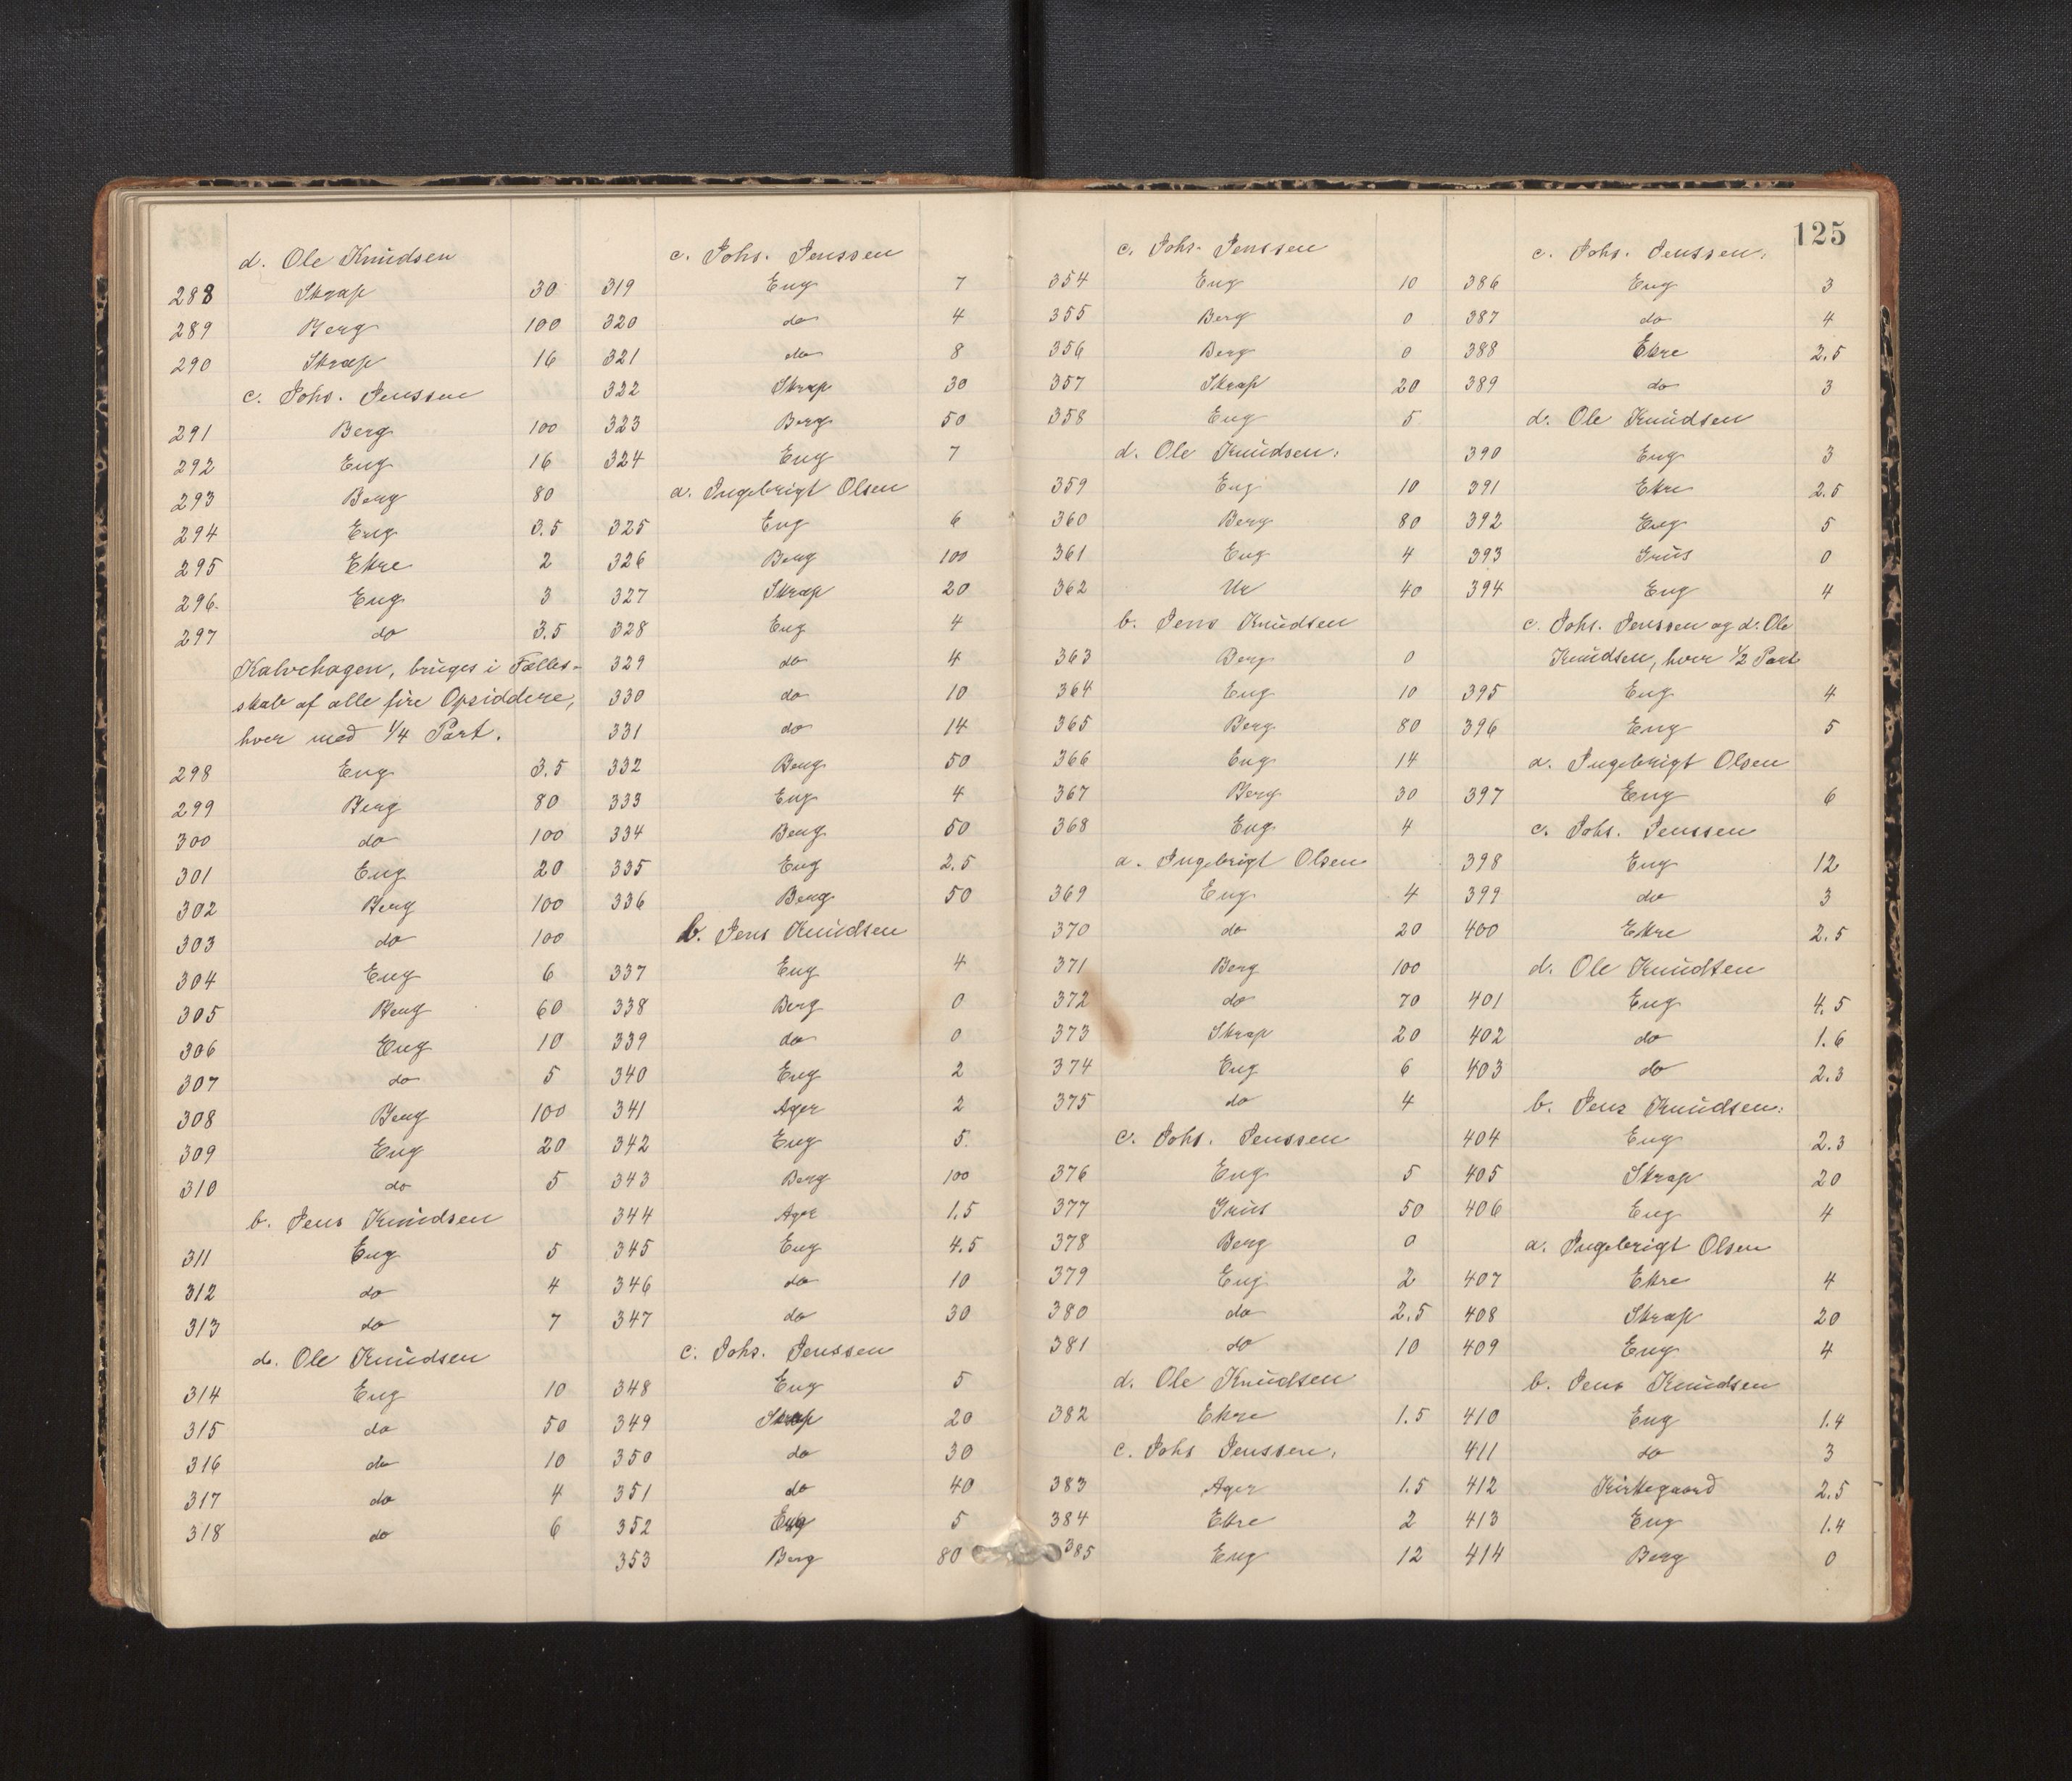 d. Ole Knudsen
288 Skrap 30
289 Berg 100
290 Skrap 16
c. Johs. Jenssen
291 Berg 100
292 Eng 16
293 Berg 80
294 Eng 3.5
295 Ekre 2
296. Eng 3
297 do 3.5
Kalvehagen, bruges i Fælles-
skab af alle fire Opsiddere,
hver med 1/4 Part.
298 Eng 3.5
299 Berg 80
300 do 100
301 Eng 20
302 Berg 100
303 do 100
304 Eng 6
305 Berg 60
306 Eng 10
307 do 5
308 Berg 100
309 Eng 20
310 do 5
b. Jens Knudsen
311 Eng 5
312 do 4
313 do 7
d. Ole Knudsen
314 Eng 10
315 do 50
316 do 10
317 do 4
318 do 6
c. Johs. Jenssen
319 Eng 7
320 do 4
321 do 8
322 Skrap 30
323 Berg 50
324 Eng 7
a. Ingebrigt Olsen
325 Eng 6
326 Berg 100
327 Skrap 20
328 Eng 4
329 do 4
330 do 10
331 do 14
332 Berg 50
333 Eng 4
334 Berg 50
335 Eng 2.5
336 Berg 50
b. Jens Knudsen
337 Eng 4
338 Berg 0
339 do 0
340 Eng 2
341 Ager 2
342 Eng 5.
343 Berg 100
344 Ager 1.5
345 Eng 4.5
346 do 10
347 do 30
c. Johs. Jenssen
348 Eng 5
349 Skrap 20
350 do 30
351 do 40
352 Eng 5
353 Berg 80
125
c. Johs. Jenssen
354 Eng 10
355 Berg 0
356 Berg 0
357 Skrap 20
358 Eng 5
d. Ole Knudsen:
359 Eng 10
360 Berg 80
361 Eng 4
362 Ur 40
b. Jens Knudsen
363 Berg 0
364 Eng 10
365 Berg 80
366 Eng 14
367 Berg 30
368 Eng 4
a. Ingebrigt Olsen
369 Eng 4
370 do 20
371 Berg 100
372 do 70
373 Skrap 20
374 Eng 6
375 do 4
c. Johs. Jenssen
376 Eng 5
377 Grus 50
378 Berg 0
379 Eng 2
380 do 2.5
381 do 10
d. Ole Knudsen
382 Ekre 1.5
c. Johs Jenssen.
383 Ager 1.5
384 Ekre 2
385 Eng 12
c. Johs. Jenssen.
386 Eng 3
387 do 4
388 Ekre 2.5
389 do 3
d. Ole Knudsen
390 Eng 3
391 Ekre 2.5
392 Eng 5
393 Grus 0
394 Eng 4
c. Johs. Jenssen og d. Ole
Knudsen, hver 1/2 Part
395 Eng 4
396 Eng 5
a. Ingebrigt Olsen
397 Eng 6
c. Johs. Jenssen
398 Eng 12
399 do 3
400 Ekre 2.5
d. Ole Knudsen
401 Eng 4.5
402 do 1.6
403 do 2.3
b. Jens Knudsen:
404 Eng 2.3
405 Skrap 20
406 Eng 4
a. Ingebrigt Olsen
407 Ekre 4
408 Skrap 20
409 Eng 4
b. Jens Knudsen
410 Eng 1.4
411 do 3
412 Kirkegaard 2.5
413 Eng 1.4
414 Berg 0